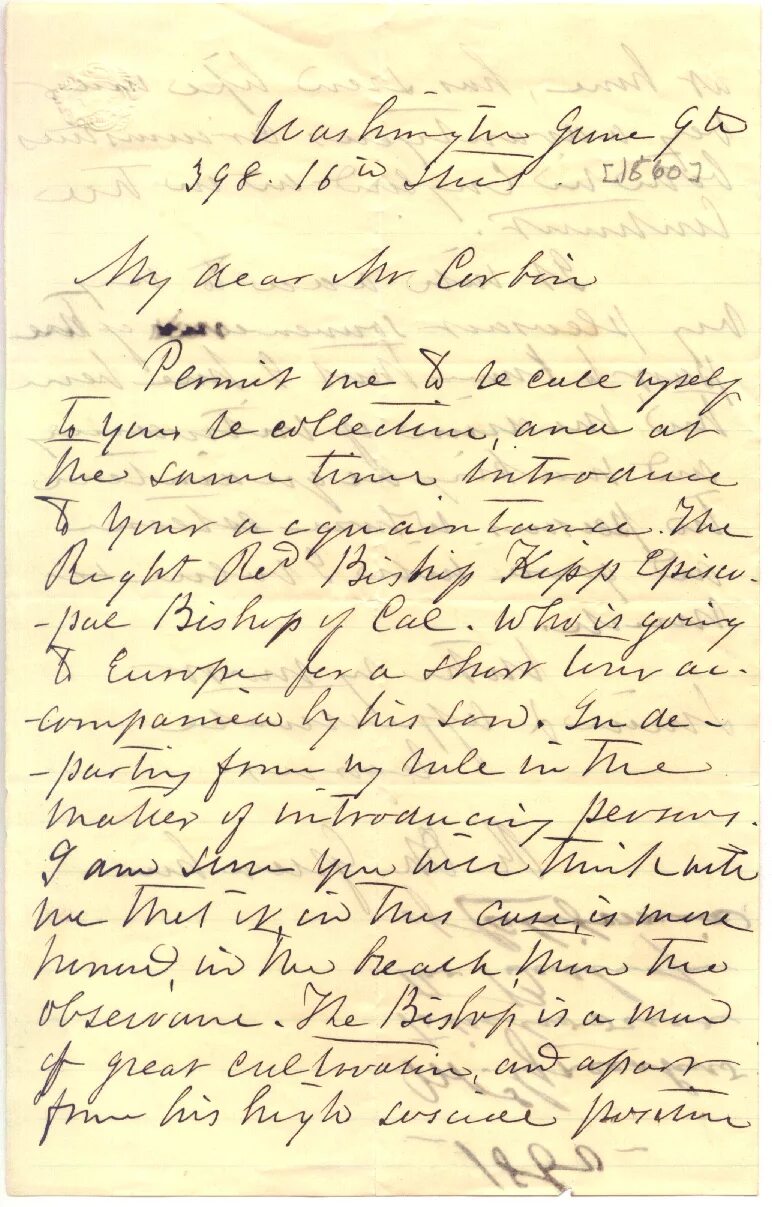 Washington June 9th
398. 16th Street. [1860]
My dear Mr Corbin
Permit me to recall myself
to your recollection, and at
the same time introduce
to your acquaintance. The
Right Red Bishop Kipp Episco-
-pal Bishop of Cal. Who is going
to Europe for a short tour ac-
-companied by his son. In de-
-parting from my rule in the
matter of introducing persons.
I am sure you will think with
me that it, in this case, is more
honored, in the breach, than the
observance. The Bishop is a man
of great cultivation, and apart
from his high social position